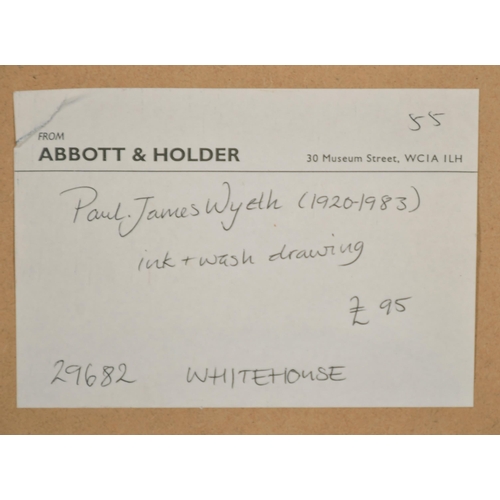 55
FROM
ABBOTT & HOLDER 30 Museum Street, WC1A 1LH
Paul James Wyeth (1920-1983)
ink + wash drawing
£ 95
29682 WHITEHOUSE